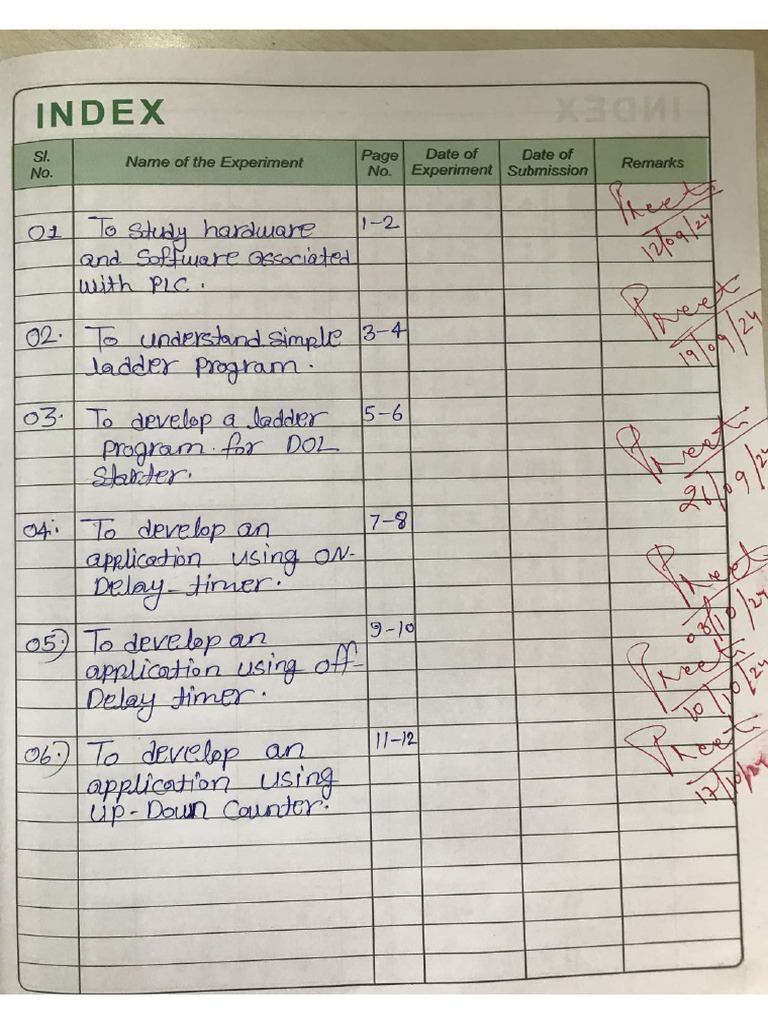 INDEX
Sl. No.
Name of the Experiment
Page No.
Date of Experiment
Date of Submission
Remarks
01 To Study hardware 1-2
and Software associated
with PLC.
Preet
12/09/24
02. To understand simple 3-4
ladder program.
Preet
19/09/24
03. To develop a ladder 5-6
program for DOL
Starter.
Preet
26/09/24
04. To develop an 7-8
application using ON-
Delay timer.
Preet
03/10/24
05) To develop an 9-10
application using off-
Delay timer.
Preet
10/10/24
06.) To develop an 11-12
application using
Up-Down Counter.
Preet
17/10/24